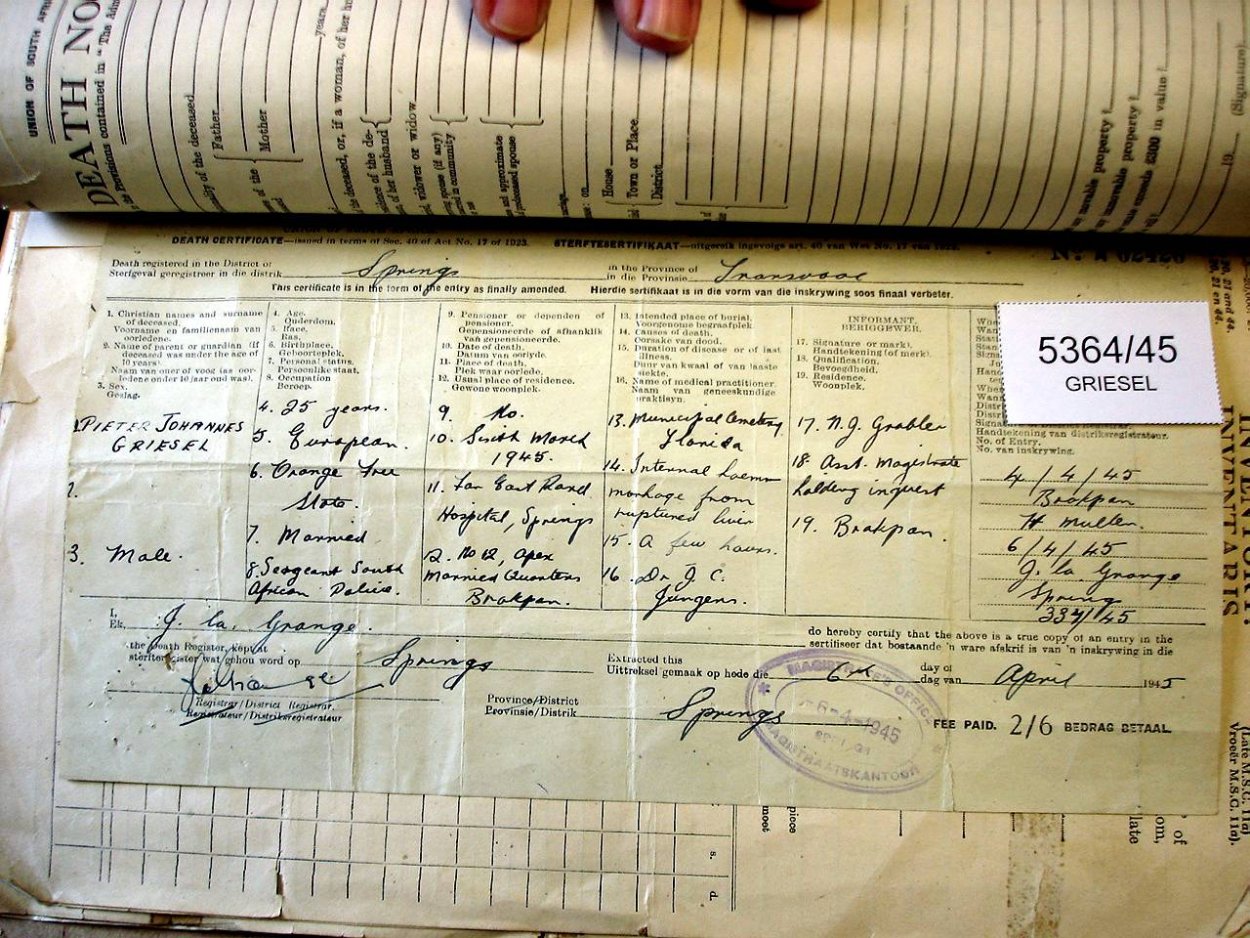 UNION OF SOUTH AFRI
DEATH NO
the Provisions contained in "The Adm
of the deceased
Father
Mother
years
the deceased, or, if a woman, of her h
of the de-
of her husband
widower or widow
spouse (if any)
in community
and approximate
predeceased spouse
on
House
Town or Place.
District
movable property?
immovable property?
exceeds £300 in value?
19
(Signature).
DEATH CERTIFICATE—issued in terms of Sec. 40 of Act No. 17 of 1923. STERFTESERTIFIKAAT—uitgereik ingevolge art. 40 van Wet No. 17 van 1923.
Death registered in the District of
Sterfgeval geregistreer in die distrik Springs
in the Province of
in die Provinsie Transvaal
This certificate is in the form of the entry as finally amended. Hierdie sertifikaat is in die vorm van die inskrywing soos finaal verbeter.
1. Christian names and surname
of deceased.
Voorname en familienaam van
oorledene.
2. Name of parent or guardian (if
deceased was under the age of
10 years)
Naam van ouer of voog (as oor-
ledene onder 10 jaar oud was).
3. Sex.
Geslag.
4. Age.
Ouderdom.
5. Race.
Ras.
6. Birthplace.
Geboorteplek.
7. Personal status.
Persoonlike staat.
8. Occupation
Beroep.
9. Pensioner or dependen of
pensioner.
Gepensioneerde of afhanklik
van gepensioneerde.
10. Date of death.
Datum van oorlyde.
11. Place of death.
Plek waar oorlede.
12. Usual place of residence.
Gewone woonplek.
13. Intended place of burial.
Voorgenome begraafplek.
14. Causes of death.
Oorsake van dood.
15. Duration of disease or of last
illness.
Duur van kwaal of van laaste
siekte.
16. Name of medical practitioner.
Naam van geneeskundige
praktisyn.
INFORMANT.
BERIGGEWER.
17. Signature or mark).
Handtekening (of merk).
18. Qualification.
Bevoegdheid.
19. Residence.
Woonplek.
Handtekening van distriksregistrateur.
No. of Entry.
No. van inskrywing.
5364/45
GRIESEL
1. PIETER JOHANNES
GRIESEL
2.
3. Male.
4. 25 years.
5. European.
6. Orange Free
State.
7. Married
8. Sergeant South
African Police.
9. No.
10. Sixth March
1945.
11. Far East Rand
Hospital, Springs
12. No 12, Apex
Married Quarters
Brakpan.
13. Municipal Cemetery,
Florida
14. Internal haem-
morhage from
ruptured liver
15. A few hours.
16. Dr. J. C.
Jurgens.
17. N.J. Grobler
18. Asst. Magistrate
holding inquest
19. Brakpan.
4/4/45
Brakpan
H Muller.
6/4/45
J. la Grange
Springs
334/45
I,
Ek, J. la Grange.
do hereby certify that the above is a true copy of an entry in the
sertifiseer dat bostaande 'n ware afskrif is van 'n inskrywing in die
the Death Register, kept at
sterfteregister wat gehou word op Springs
Extracted this
Uittreksel gemaak op hede die 6th
day of
dag van April 1945
Registrar/District Registrar.
Registrateur/Distriksregistrateur
Province/District
Provinsie/Distrik Springs
MAGISTRATE'S OFFICE
-6-4-1945
MAGISTRAATSKANTOOR
FEE PAID. 2/6 BEDRAG BETAAL.
INVENTORY.
INVENTARIS
(Late M.S.C. 11(a)
Vroeër M.S.C. 11(a).
s. d.